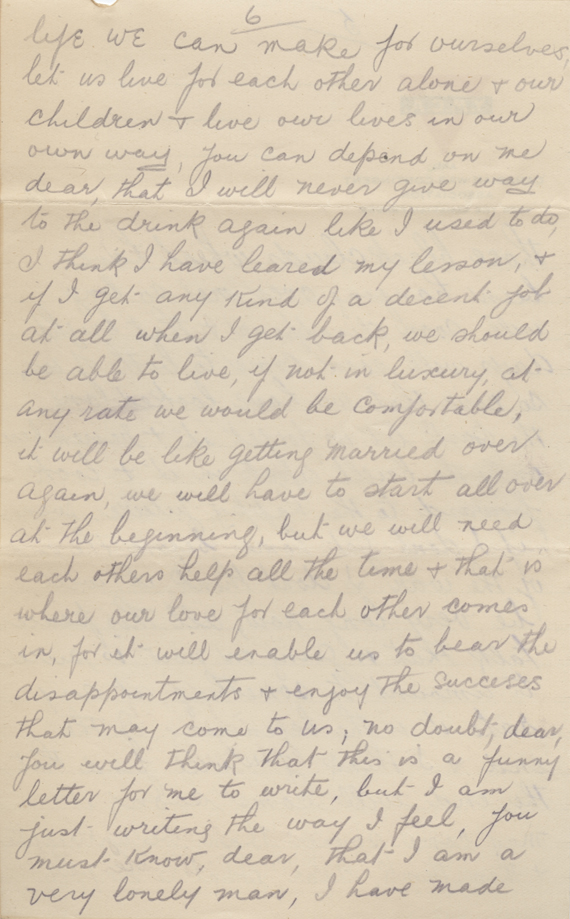 6
life we can make for ourselves,
let us live for each other alone + our
children + live our lives in our
own way, you can depend on me
dear, that I will never give way
to the drink again like I used to do,
I think I have leared my lesson, +
if I get any kind of a decent job
at all when I get back, we should
be able to live, if not in luxury, at
any rate we would be comfortable,
it will be like getting married over
again, we will have to start all over
at the beginning, but we will need
each others help all the time + that is
where our love for each other comes
in, for it will enable us to bear the
disappointments + enjoy the succeses
that may come to us; no doubt, dear,
you will think that this is a funny
letter for me to write, but I am
just writing the way I feel, you
must know, dear, that I am a
very lonely man, I have made